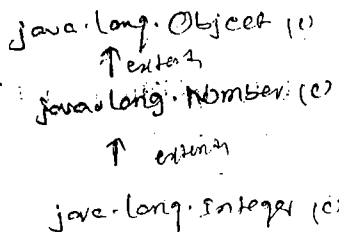 java.lang.Object (c)
↑ extends
java.lang.Number (c)
↑ extends
java.lang.Integer (c)